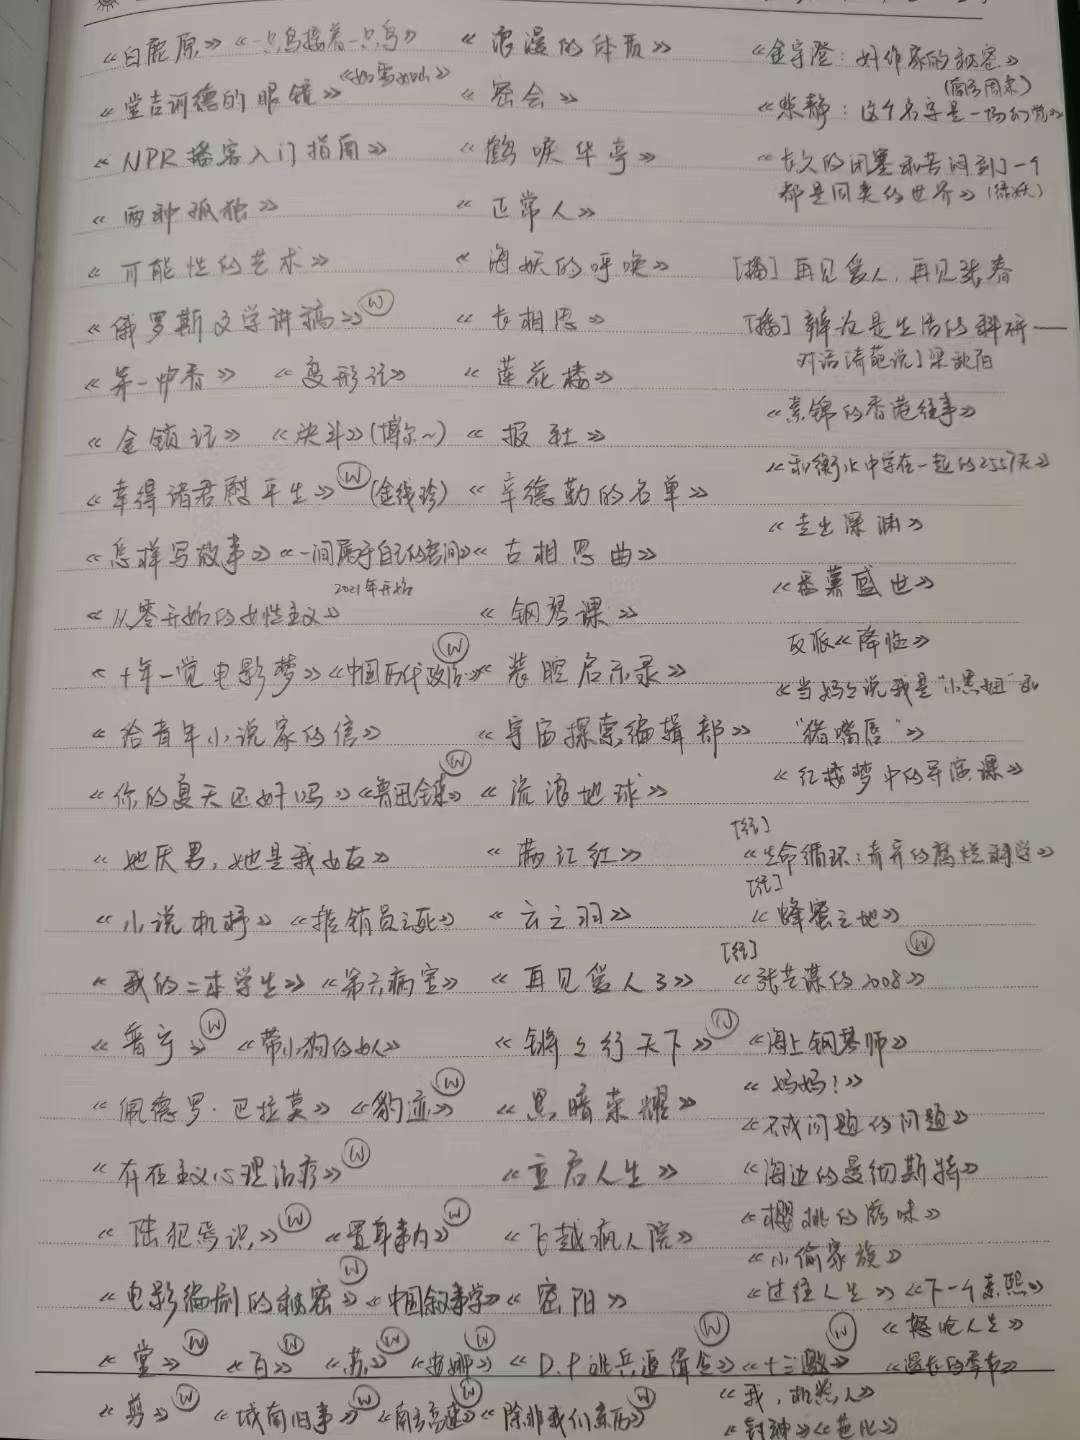 《白鹿原》《一只鸟接着一只鸟》 《浪漫的体质》 《金宇澄：好作家的秘密》
《堂吉诃德的眼镜》 《密会》 (南方周末)
《张静：这个名字是一场幻觉》
《NPR播客入门指南》 《鹤唳华亭》 《长久的闭塞和苦闷到了一个
都是同类的世界》(绿妖)
《两种孤独》 《正常人》
《可能性的艺术》 《海妖的呼唤》 [播] 再见爱人，再见张春
《俄罗斯文学讲稿》Ⓦ 《长相思》 [播] 辩论是生活的科研——
对话[奇葩说]梁秋阳
《第一炉香》 《变形记》 《莲花楼》
《金锁记》 《决斗》(博尔~) 《报社》 《素锦的香港往事》
《幸得诸君慰平生》Ⓦ (金线珍) 《辛德勒的名单》 《和衡水中学在一起的2557天》
《走出深渊》
《怎样写故事》《一间属于自己的房间》《古相思曲》
2021年开始 《番薯盛世》
《从零开始的女性主义》 《钢琴课》
反派《降临》
《十年一觉电影梦》《中国历代政治》Ⓦ《装腔启示录》 《当妈妈说我是“小黑妞”和
“猪嘴唇”》
《给青年小说家的信》 《宇宙探索编辑部》
《红楼梦中的导演课》
《你的夏天还好吗》《鲁迅全集》Ⓦ 《流浪地球》
《她厌男，她是我女友》 《满江红》 [纪]
《生命循环：奇异的腐烂科学》
[纪]
《小说机杼》《推销员之死》 《云之羽》 《蜂蜜之地》
[纪]
《我的二本学生》《第六病室》 《再见爱人3》 《张艺谋的2008》Ⓦ
《晋宁》Ⓦ 《带小狗的女人》 《锵锵行天下》Ⓦ 《海上钢琴师》
《妈妈！》
《佩德罗·巴拉莫》《豹迹》Ⓦ 《黑暗荣耀》 《不成问题的问题》
《存在主义心理治疗》Ⓦ 《重启人生》 《海边的曼彻斯特》
《樱桃的滋味》
《陆犯焉识》Ⓦ 《置身事内》Ⓦ 《飞越疯人院》 《小偷家族》
《电影编剧的秘密》Ⓦ《中国叙事学》《密阳》 《过往人生》《下一个素熙》
《怒呛人生》
《堂》Ⓦ 《百》Ⓦ 《苏》Ⓦ 《安娜》Ⓦ 《D.P逃兵追缉令》Ⓦ《十三邀》Ⓦ 《漫长的季节》
《我，机器人》
《剪》Ⓦ 《城南旧事》Ⓦ 《南方高速》Ⓦ《除非我们东西》Ⓦ 《封神》《芭比》